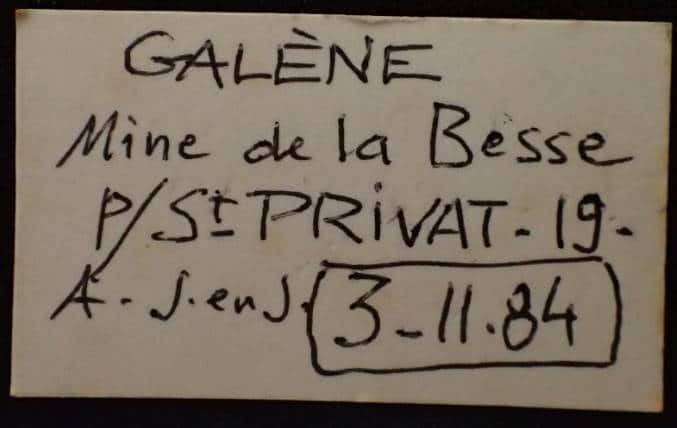 GALÈNE
Mine de la Besse
P/St PRIVAT-19-
A-J.en J. 3-11.84